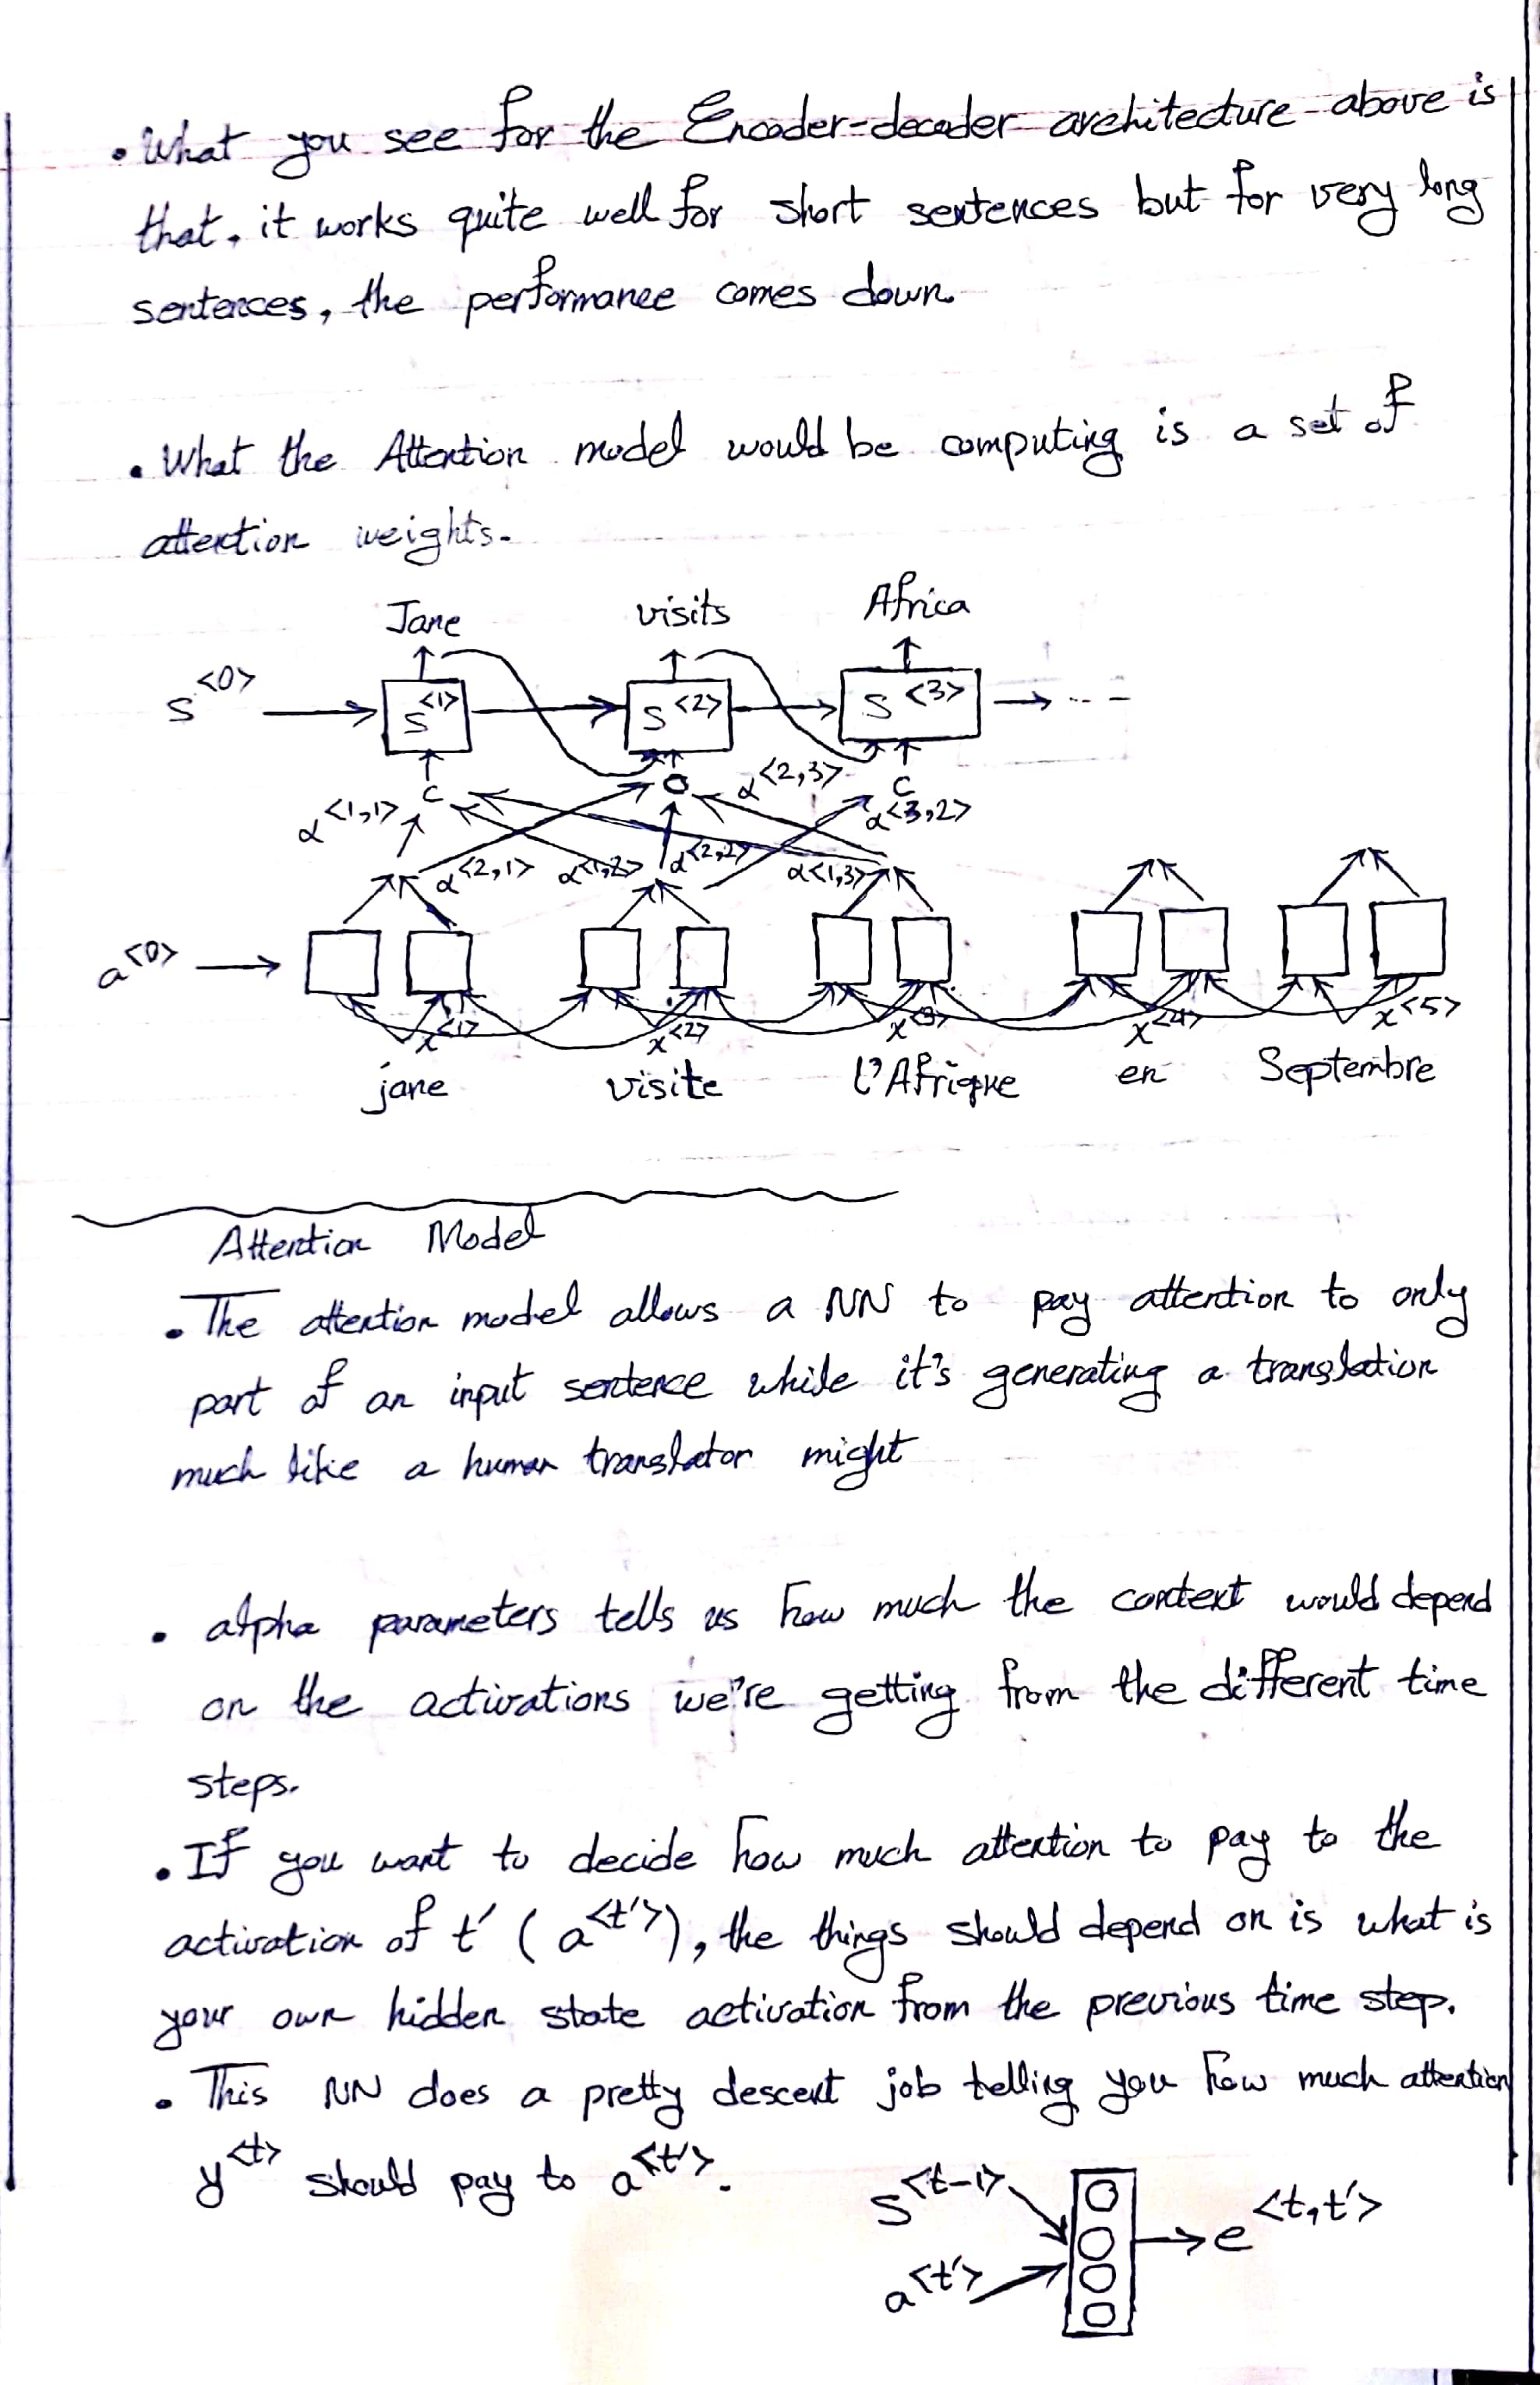 • What you see for the Encoder-decoder architecture above is
that. it works quite well for short sentences but for very long
sentences, the performance comes down.
• What the Attention model would be computing is a set of
attention weights.
Jane visits Africa
s<0> s<1> s<2> s<3> → ---
α<1,1> c c α<2,3> c α<3,2>
α<2,1> α<1,2> α<2,2> α<1,3>
a<0>
x<1> x<2> x<3> x<4> x<5>
jane visite l'Afrique en Septembre
Attention Model
• The attention model allows a NN to pay attention to only
part of an input sentence while it's generating a translation
much like a human translator might
• alpha parameters tells us how much the context would depend
on the activations we're getting from the different time
steps.
• If you want to decide how much attention to pay to the
activation of t' (a<t'>), the things should depend on is what is
your own hidden state activation from the previous time step.
• This NN does a pretty descent job telling you how much attention
y<t> should pay to a<t'>.
s<t-1>
→ e<t,t'>
a<t'>